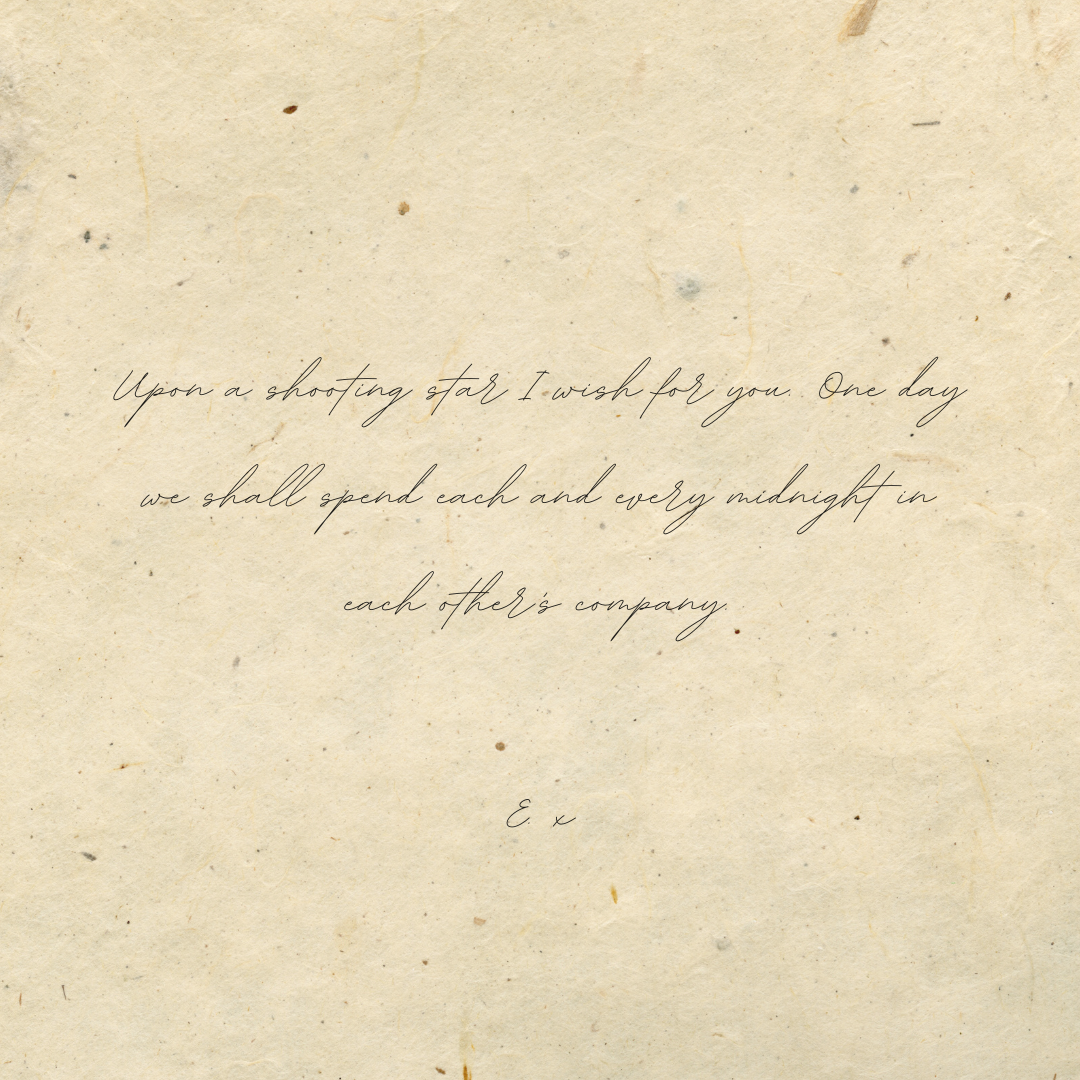 Upon a shooting star I wish for you. One day
we shall spend each and every midnight in
each other's company.
E. x